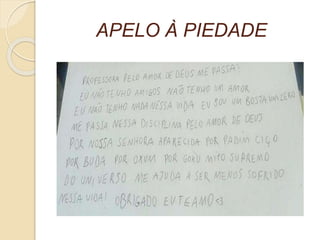 APELO À PIEDADE
PROFESSORA PELO AMOR DE DEUS ME PASSA!
EU NÃO TENHO AMIGOS NÃO TENHO UM AMOR
EU NÃO TENHO NADA NESSA VIDA EU SOU UM BOSTA UM ZERO
ME PASSA NESSA DISCIPLINA PELO AMOR DE DEUS
POR NOSSA SENHORA APARECIDA POR PADIM CIÇO
POR BUDA POR OXUM POR GOKU MITO SUPREMO
DO UNIVERSO ME AJUDA A SER MENOS SOFRIDO
NESSA VIDA! OBRIGADO EU TE AMO <3